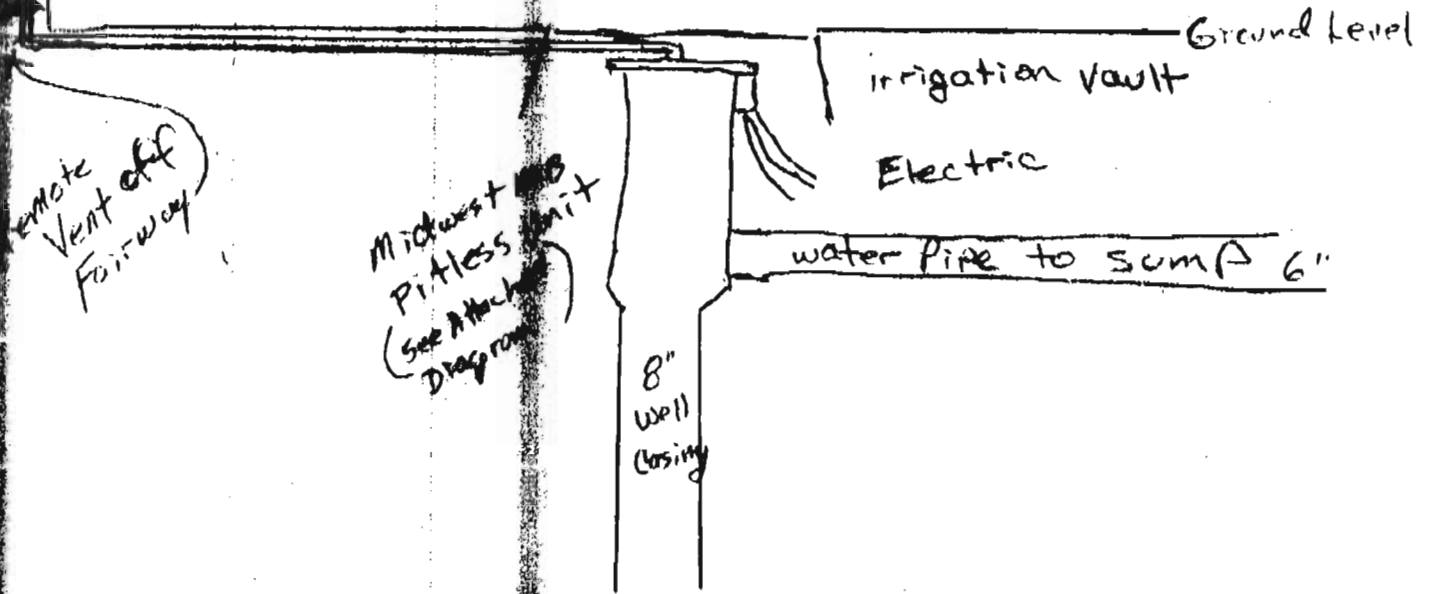 Ground Level
irrigation vault
Electric
water Pipe to sump 6"
emote
Vent off
Fairway
Midwest
Pitless Unit
(see Attached
Diagram)
8"
Well
Casing